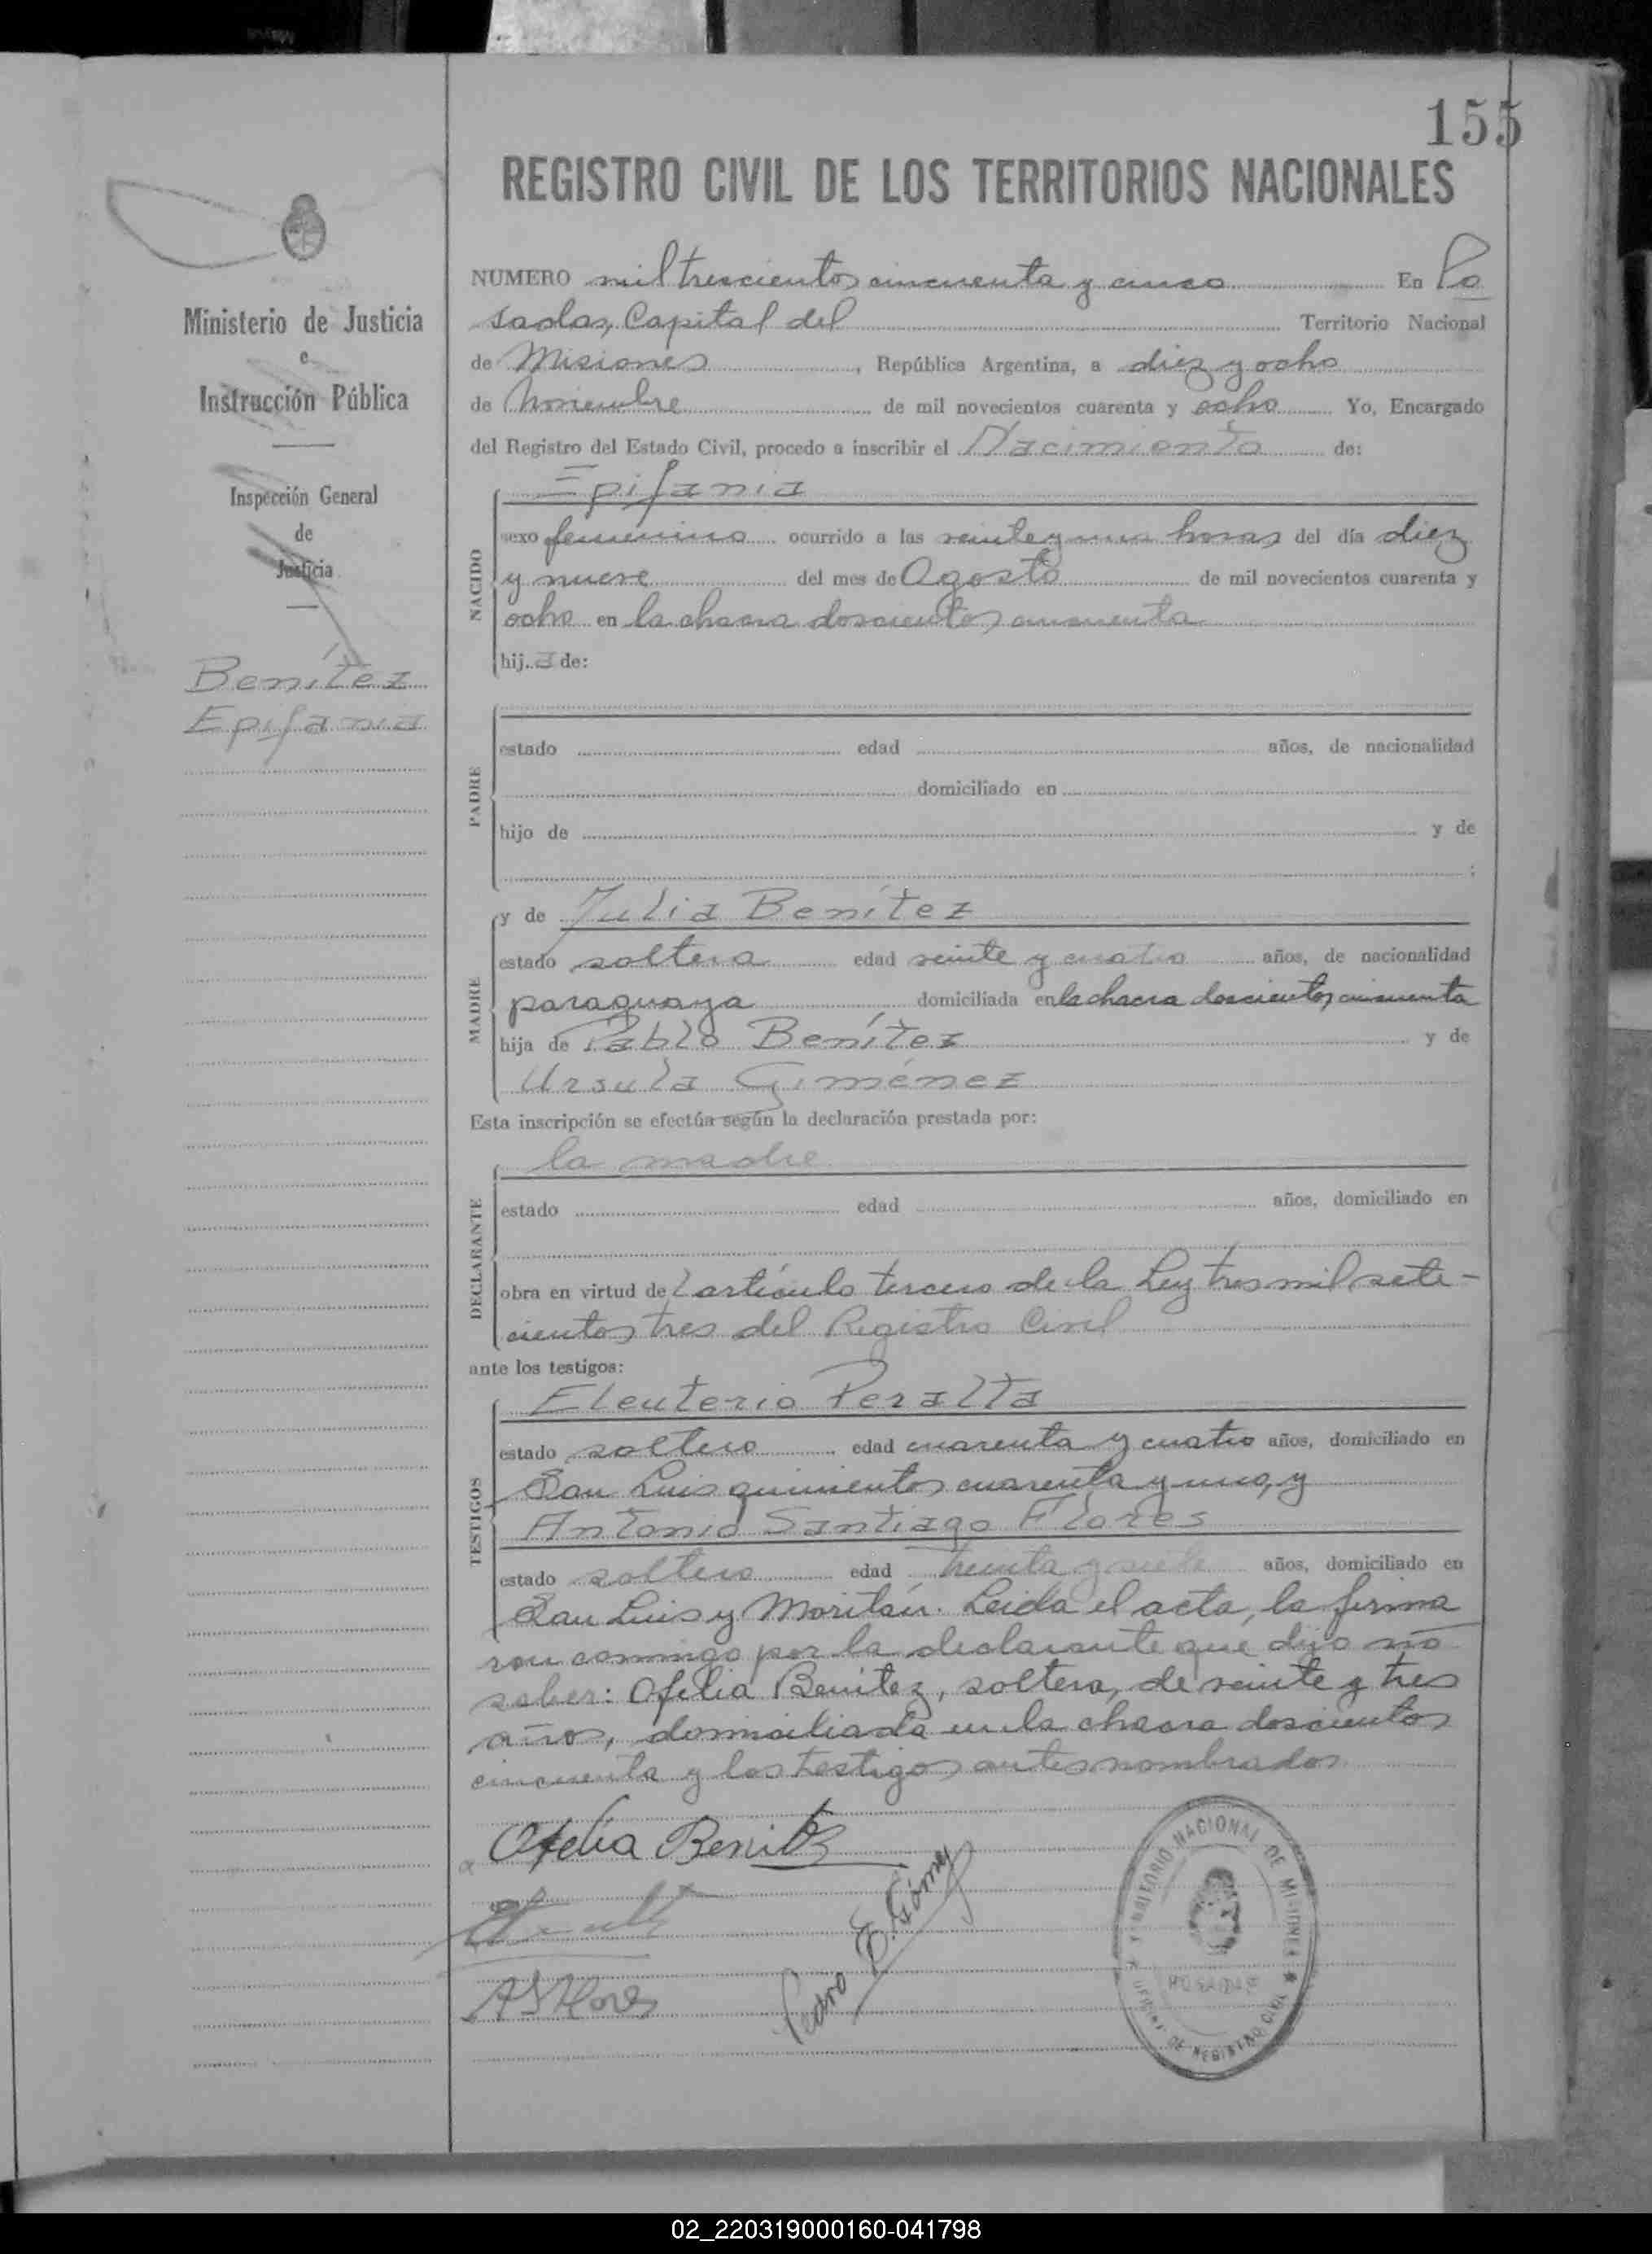 155
REGISTRO CIVIL DE LOS TERRITORIOS NACIONALES
Ministerio de Justicia
e
Instrucción Pública
Inspección General
de
Justicia
Benítez
Epifania
NUMERO mil trescientos cincuenta y cinco En Po
sadas, Capital del Territorio Nacional
de Misiones, República Argentina, a diez y ocho
de Noviembre de mil novecientos cuarenta y ocho Yo, Encargado
del Registro del Estado Civil, procedo a inscribir el Nacimiento de:
NACIDO
Epifania
sexo femenino ocurrido a las veinte y una horas del día diez
y nueve del mes de Agosto de mil novecientos cuarenta y
ocho en la chacra doscientos cincuenta
hija de:
PADRE
estado edad años, de nacionalidad
domiciliado en
hijo de y de
;
MADRE
y de Julia Benítez
estado soltera edad veinte y cuatro años, de nacionalidad
paraguaya domiciliada en la chacra doscientos cincuenta
hija de Pablo Benítez y de
Ursula Giménez
Esta inscripción se efectúa según la declaración prestada por:
DECLARANTE
la madre
estado edad años, domiciliado en
obra en virtud del artículo tercero de la Ley tres mil sete-
cientos tres del Registro Civil
ante los testigos:
TESTIGOS
Eleuterio Peralta
estado soltero edad cuarenta y cuatro años, domiciliado en
San Luis quinientos cuarenta y uno, y
Antonio Santiago Flores
estado soltero edad treinta y siete años, domiciliado en
San Luis y Moritán. Leida el acta, la firma
ron conmigo por la declarante que dijo no
saber: Ofelia Benitez, soltera, de veinte y tres
años, domiciliada en la chacra doscientos
cincuenta y los testigos antes nombrados
Ofelia Benitez
ASFlores
Pedro E. Gómez
TERRITORIO NACIONAL DE MISIONES
POSADAS
OFICINA DE REGISTRO CIVIL
02_220319000160-041798